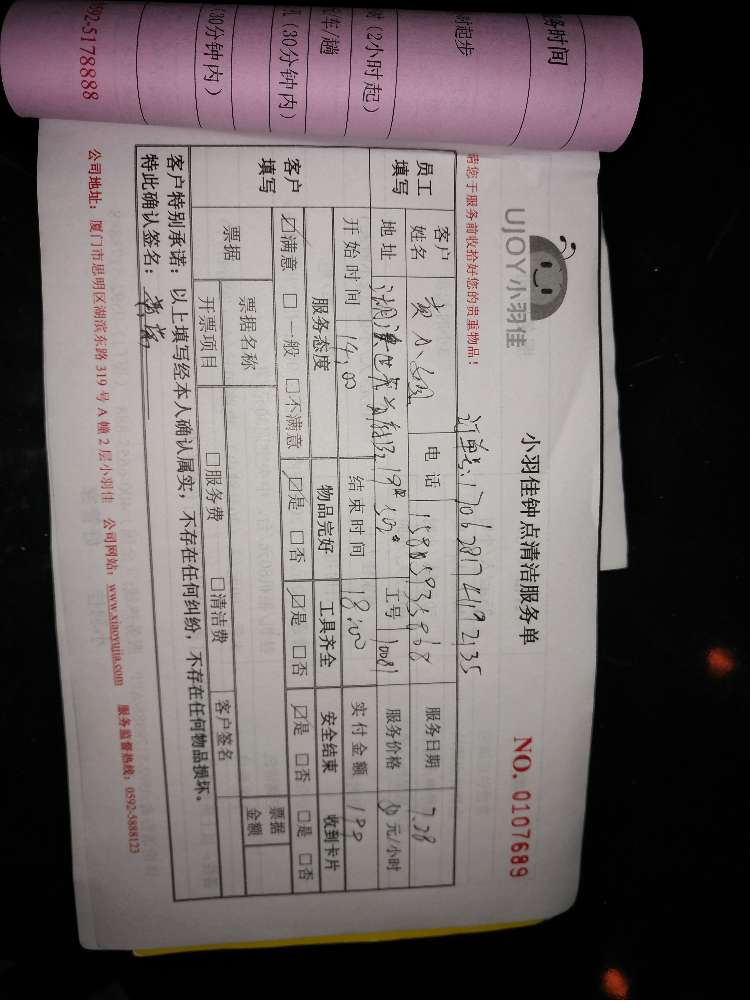 务时间
时起步
时（2小时起）
车/趟
（30分钟内）
（30分钟内）
592-5178888
UJOY小羽佳
小羽佳钟点清洁服务单
NO. 0107689
请您于服务前收拾好您的贵重物品！
订单号:
员工填写
客户姓名
电话
服务日期 7.28
地址
工号 10081
服务价格
元/小时
开始时间 14:00
结束时间 18:00
实付金额 199
客户填写
服务态度
物品完好
工具齐全
安全结束
收到卡片
☑满意 □一般 □不满意
☑是 □否
☑是 □否
☑是 □否
□是 □否
票据
票据名称
票据金额
开票项目
□服务费 □清洁费
客户签名
客户特别承诺：以上填写经本人确认属实，不存在任何纠纷，不存在任何物品损坏。
特此确认签名：
公司地址：厦门市思明区湖滨东路319号A幢2层小羽佳 公司网站：www.xiaoyujia.com 服务监督热线：0592-5888123